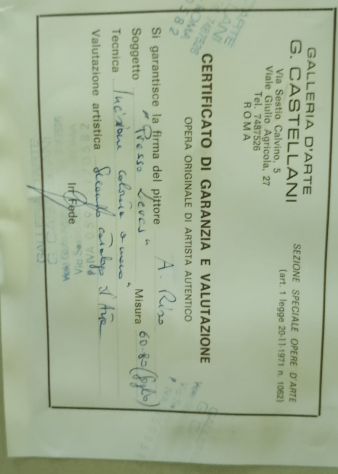 GALLERIA D'ARTE
G. CASTELLANI
Via Sestio Calvino, 5
Viale Giulio Agricola, 27
Tel. 7487526
ROMA
SEZIONE SPECIALE OPERE D'ARTE
(art. 1 legge 20-11-1971 n. 1062)
CERTIFICATO DI GARANZIA E VALUTAZIONE
OPERA ORIGINALE DI ARTISTA AUTENTICO
Si garantisce la firma del pittore A.
Soggetto "Presso Misura 60-80 (foglio)
Tecnica Incisione a mano
Valutazione artistica Secondo catalogo d'Arte
In Fede